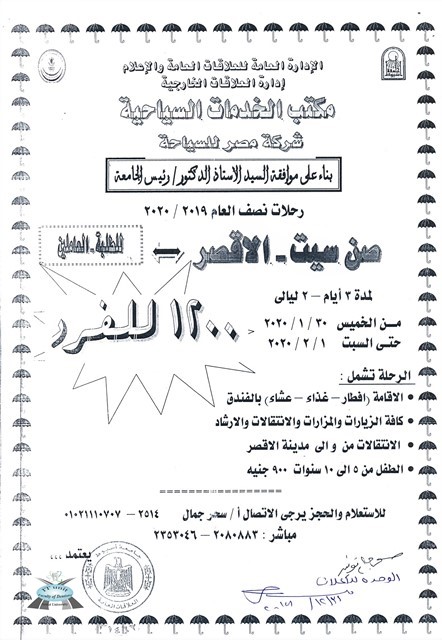 الإدارة العامة للعلاقات العامة والإعلام
إدارة العلاقات الخارجية
مكتب الخدمات السياحية
شركة مصر للسياحة
بناء على موافقة السيد الاستاذ الدكتور/ رئيس الجامعة
رحلات نصف العام ٢٠١٩ / ٢٠٢٠
صن سيت - الاقصر
للطلبة - العاملين
لمدة ٣ أيام – ٢ ليالى
من الخميس ٣٠ / ١ / ٢٠٢٠
حتى السبت ١ / ٢ / ٢٠٢٠
١٢٠٠ للفرد
الرحلة تشمل :
• الاقامة (افطار – غذاء – عشاء) بالفندق
• كافة الزيارات والمزارات والانتقالات والارشاد
• الانتقالات من و الى مدينة الاقصر
• الطفل من ٥ الى ١٠ سنوات ٩٠٠ جنيه
للاستعلام والحجز يرجى الاتصال أ / سحر جمال ٢٥١٤ – ٠١٠٢١١١٠٧٠٧
مباشر : ٢٠٨٠٨٨٣ – ٢٣٥٣٠٤٦
يعتمد ،،،